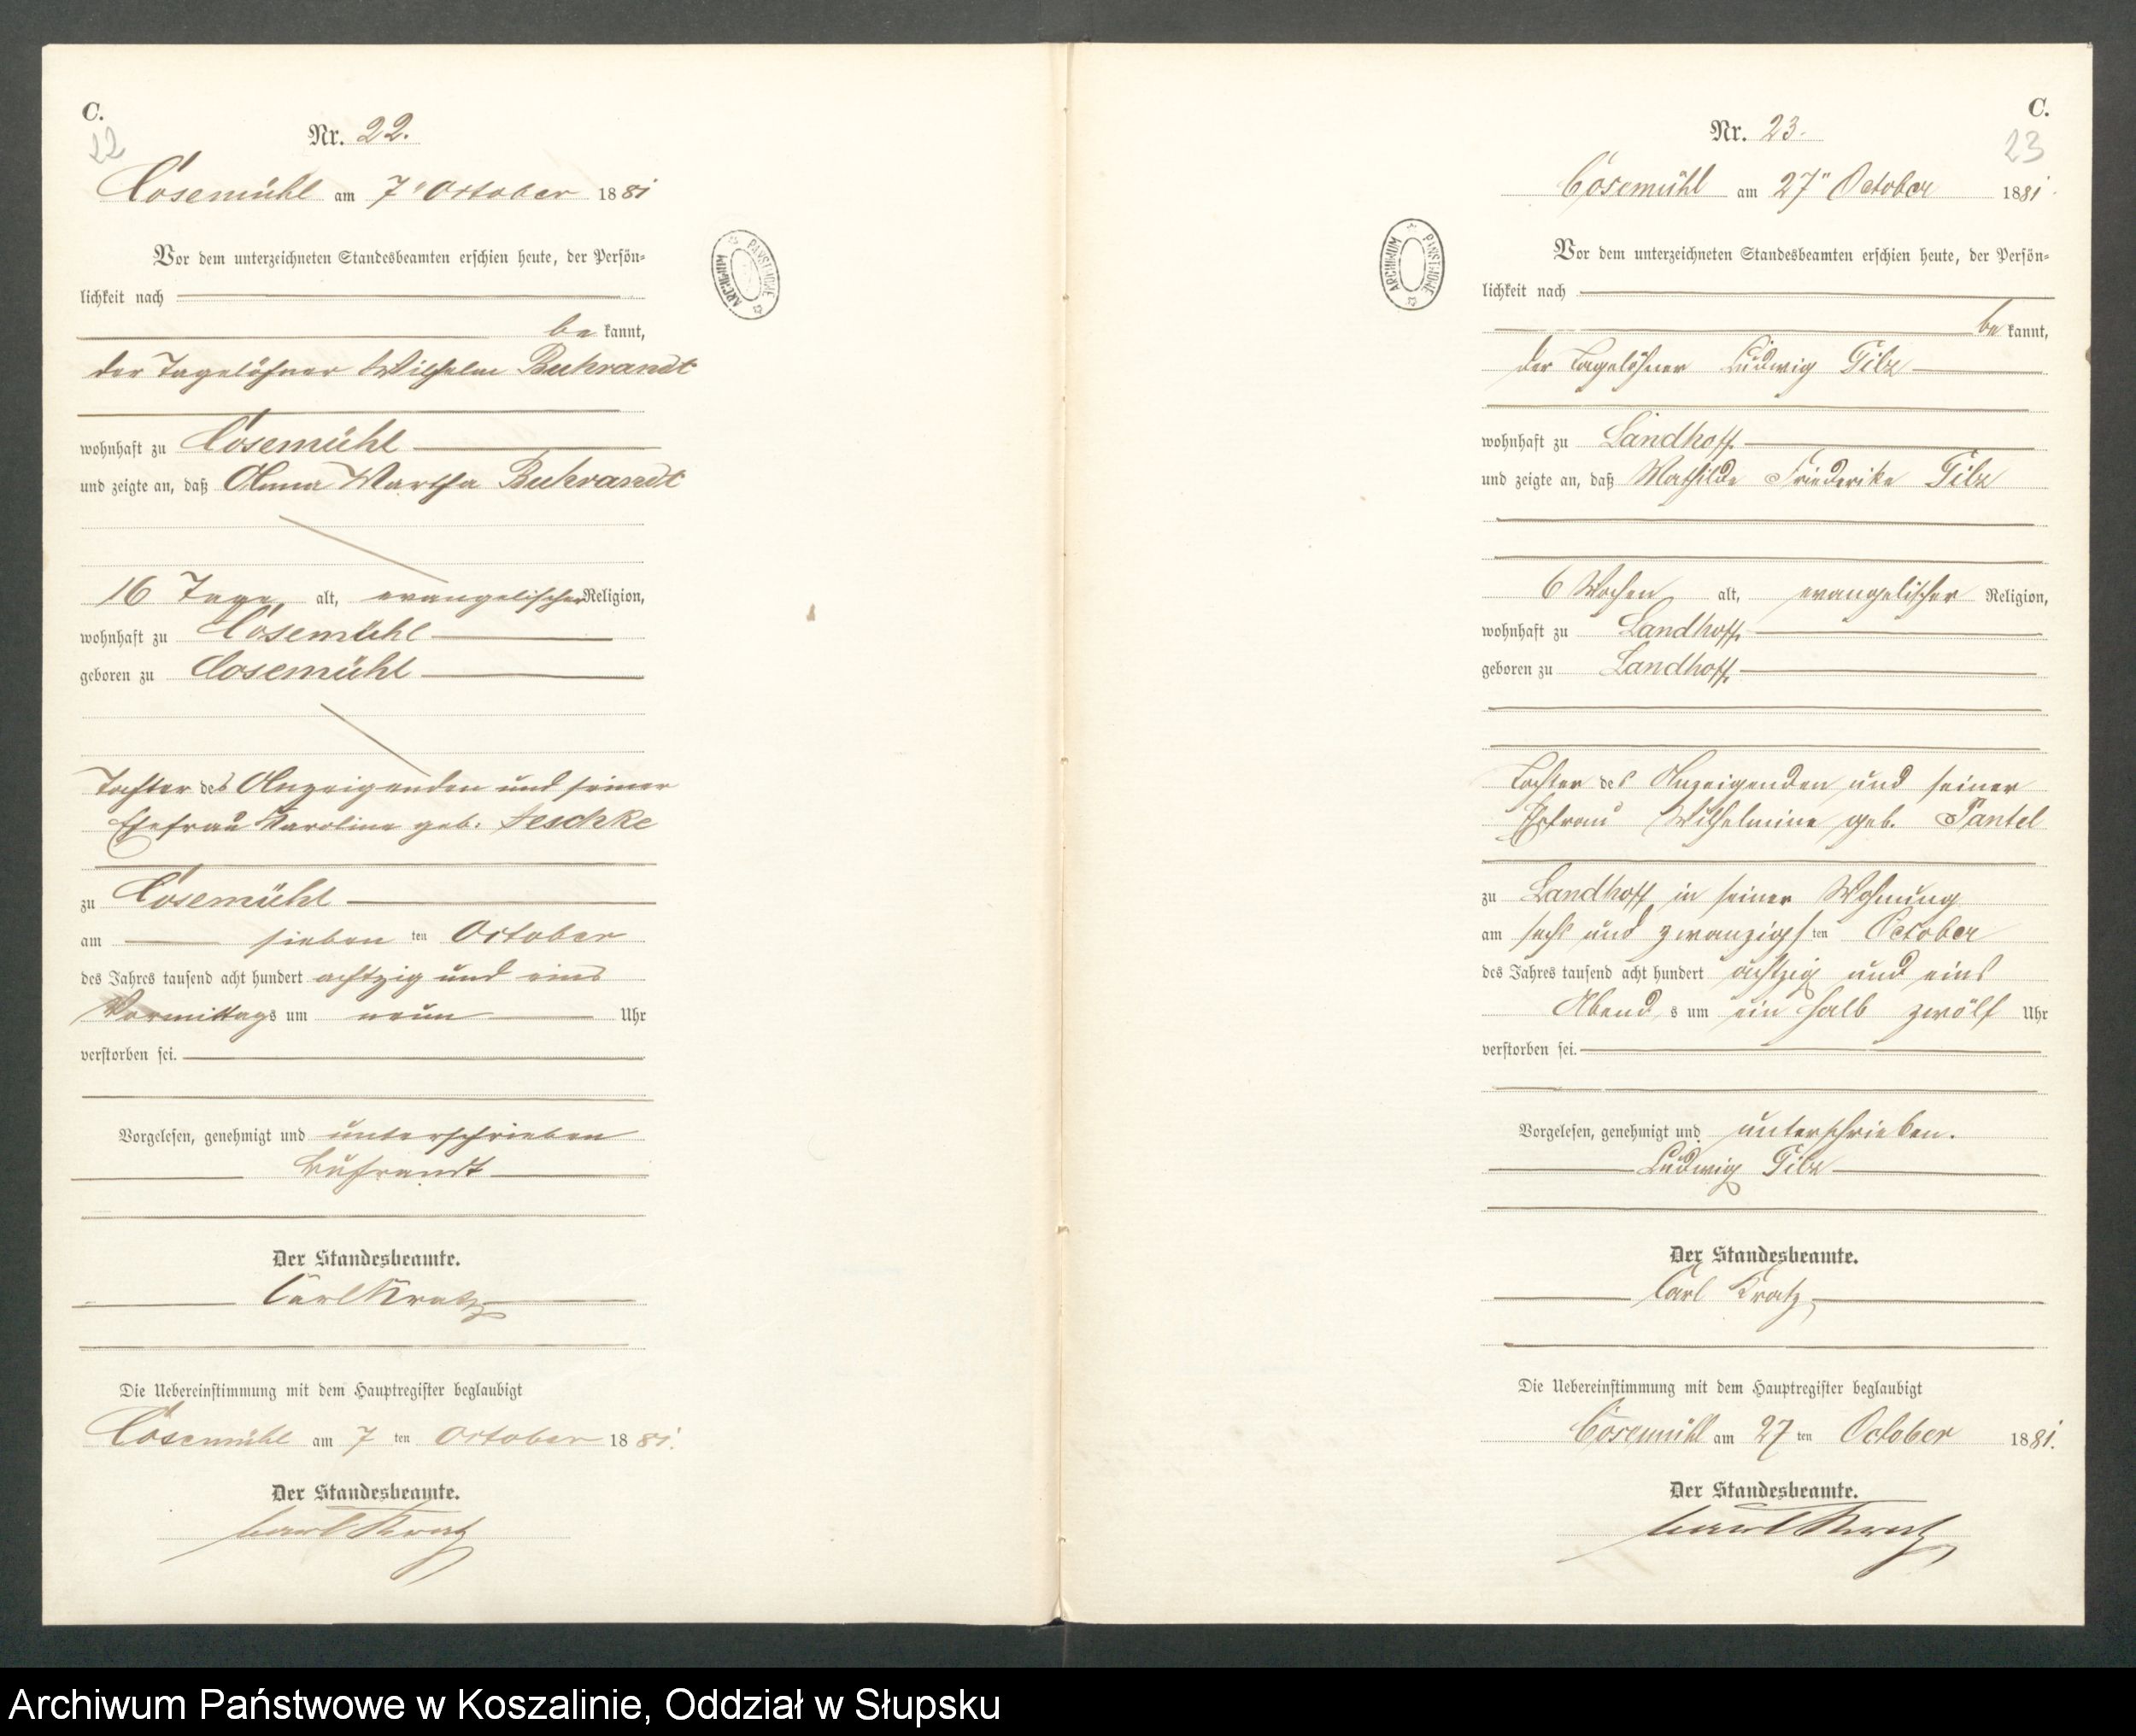 C.
22
Nr. 22.
Cosemühl am 7t October 1881
Vor dem unterzeichneten Standesbeamten erschien heute, der Persön-
lichkeit nach
be kannt,
der Tagelöhner Wilhelm Buhrandt
wohnhaft zu Cosemühl
und zeigte an, daß Anna Martha Buhrandt
16 Tage alt, evangelischer Religion,
wohnhaft zu Cosemühl
geboren zu Cosemühl
Tochter des Anzeigenden und seiner
Ehefrau Karoline geb. Jeschke
zu Cosemühl
am sieben ten October
des Jahres tausend acht hundert achtzig und eins
Vormittags um neun Uhr
verstorben sei.
Vorgelesen, genehmigt und unterschrieben
Buhrandt
Der Standesbeamte.
Carl Kratz
Die Uebereinstimmung mit dem Hauptregister beglaubigt
Cosemühl am 7 ten October 1881.
Der Standesbeamte.
Carl Kratz
ARCHIWUM PAŃSTWOWE
C.
23
Nr. 23.
Cosemühl am 27" October 1881.
Vor dem unterzeichneten Standesbeamten erschien heute, der Persön-
lichkeit nach
be kannt,
der Tagelöhner Ludwig Pilz
wohnhaft zu Landhoff
und zeigte an, daß Mathilde Friederike Pilz
6 Wochen alt, evangelischer Religion,
wohnhaft zu Landhoff
geboren zu Landhoff
Tochter des Anzeigenden und seiner
Ehefrau Wilhelmine geb. Pantel
zu Landhoff in seiner Wohnung
am sechs und zwanzigsten October
des Jahres tausend acht hundert achtzig und eins
Abends um ein halb zwölf Uhr
verstorben sei.
Vorgelesen, genehmigt und unterschrieben.
Ludwig Pilz
Der Standesbeamte.
Carl Kratz
Die Uebereinstimmung mit dem Hauptregister beglaubigt
Cosemühl am 27 ten October 1881.
Der Standesbeamte.
Carl Kratz
ARCHIWUM PAŃSTWOWE
Archiwum Państwowe w Koszalinie, Oddział w Słupsku